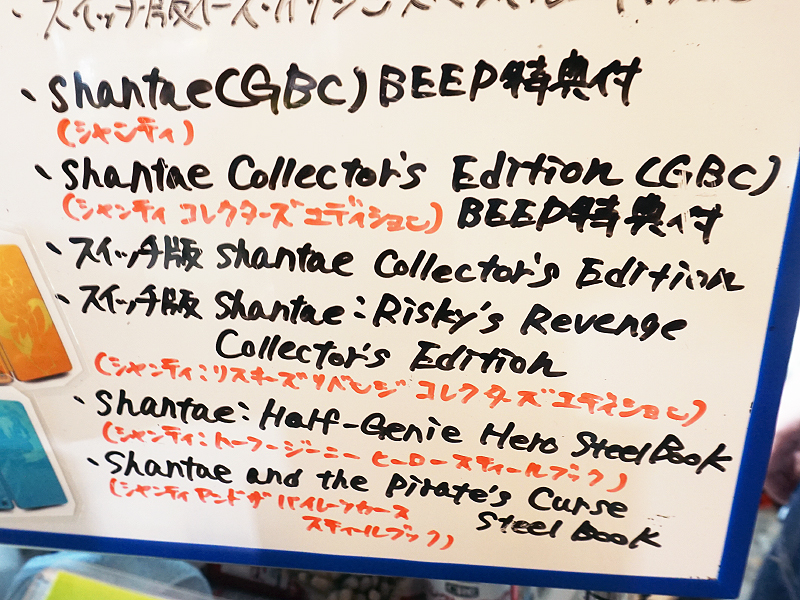 ・スイッチ版
・Shantae(GBC) BEEP特典付
(シャンティ)
・Shantae Collector's Edition (GBC)
(シャンティ コレクターズエディション) BEEP特典付
・スイッチ版 Shantae Collector's Edition
・スイッチ版 Shantae: Risky's Revenge
Collector's Edition
(シャンティ:リスキーズリベンジ コレクターズエディション)
・Shantae: Half-Genie Hero SteelBook
(シャンティ:ハーフージーニー ヒーロースティールブック)
・Shantae and the Pirate's Curse
(シャンティアンドザパイレーツカース Steel Book
スティールブック)